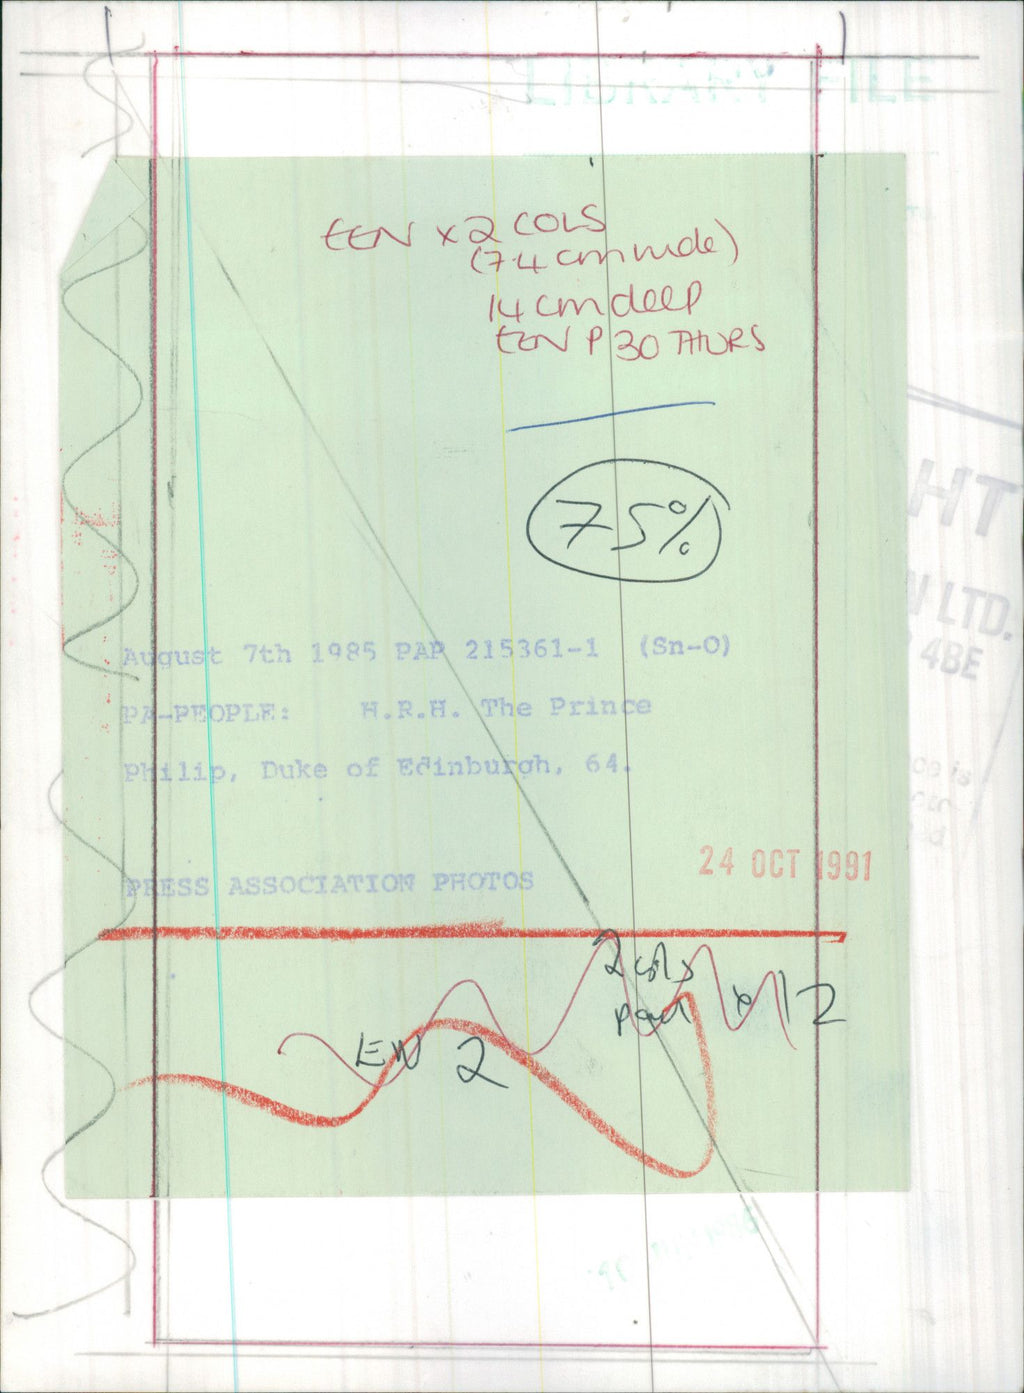 LIBRARY FILE
EEN x 2 COLS
(7.4 cm wide)
14 cm deep
EEN P 30 THURS
75%
HT
N LTD.
4BE
August 7th 1985 PAP 215361-1 (Sn-O)
PA-PEOPLE: H.R.H. The Prince
Philip, Duke of Edinburgh, 64.
24 OCT 1991
PRESS ASSOCIATION PHOTOS
2 cols
x 12
EN 2